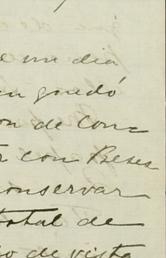 e un dia
quedó
on de con-
con Reses
conservar
total de
o de vista